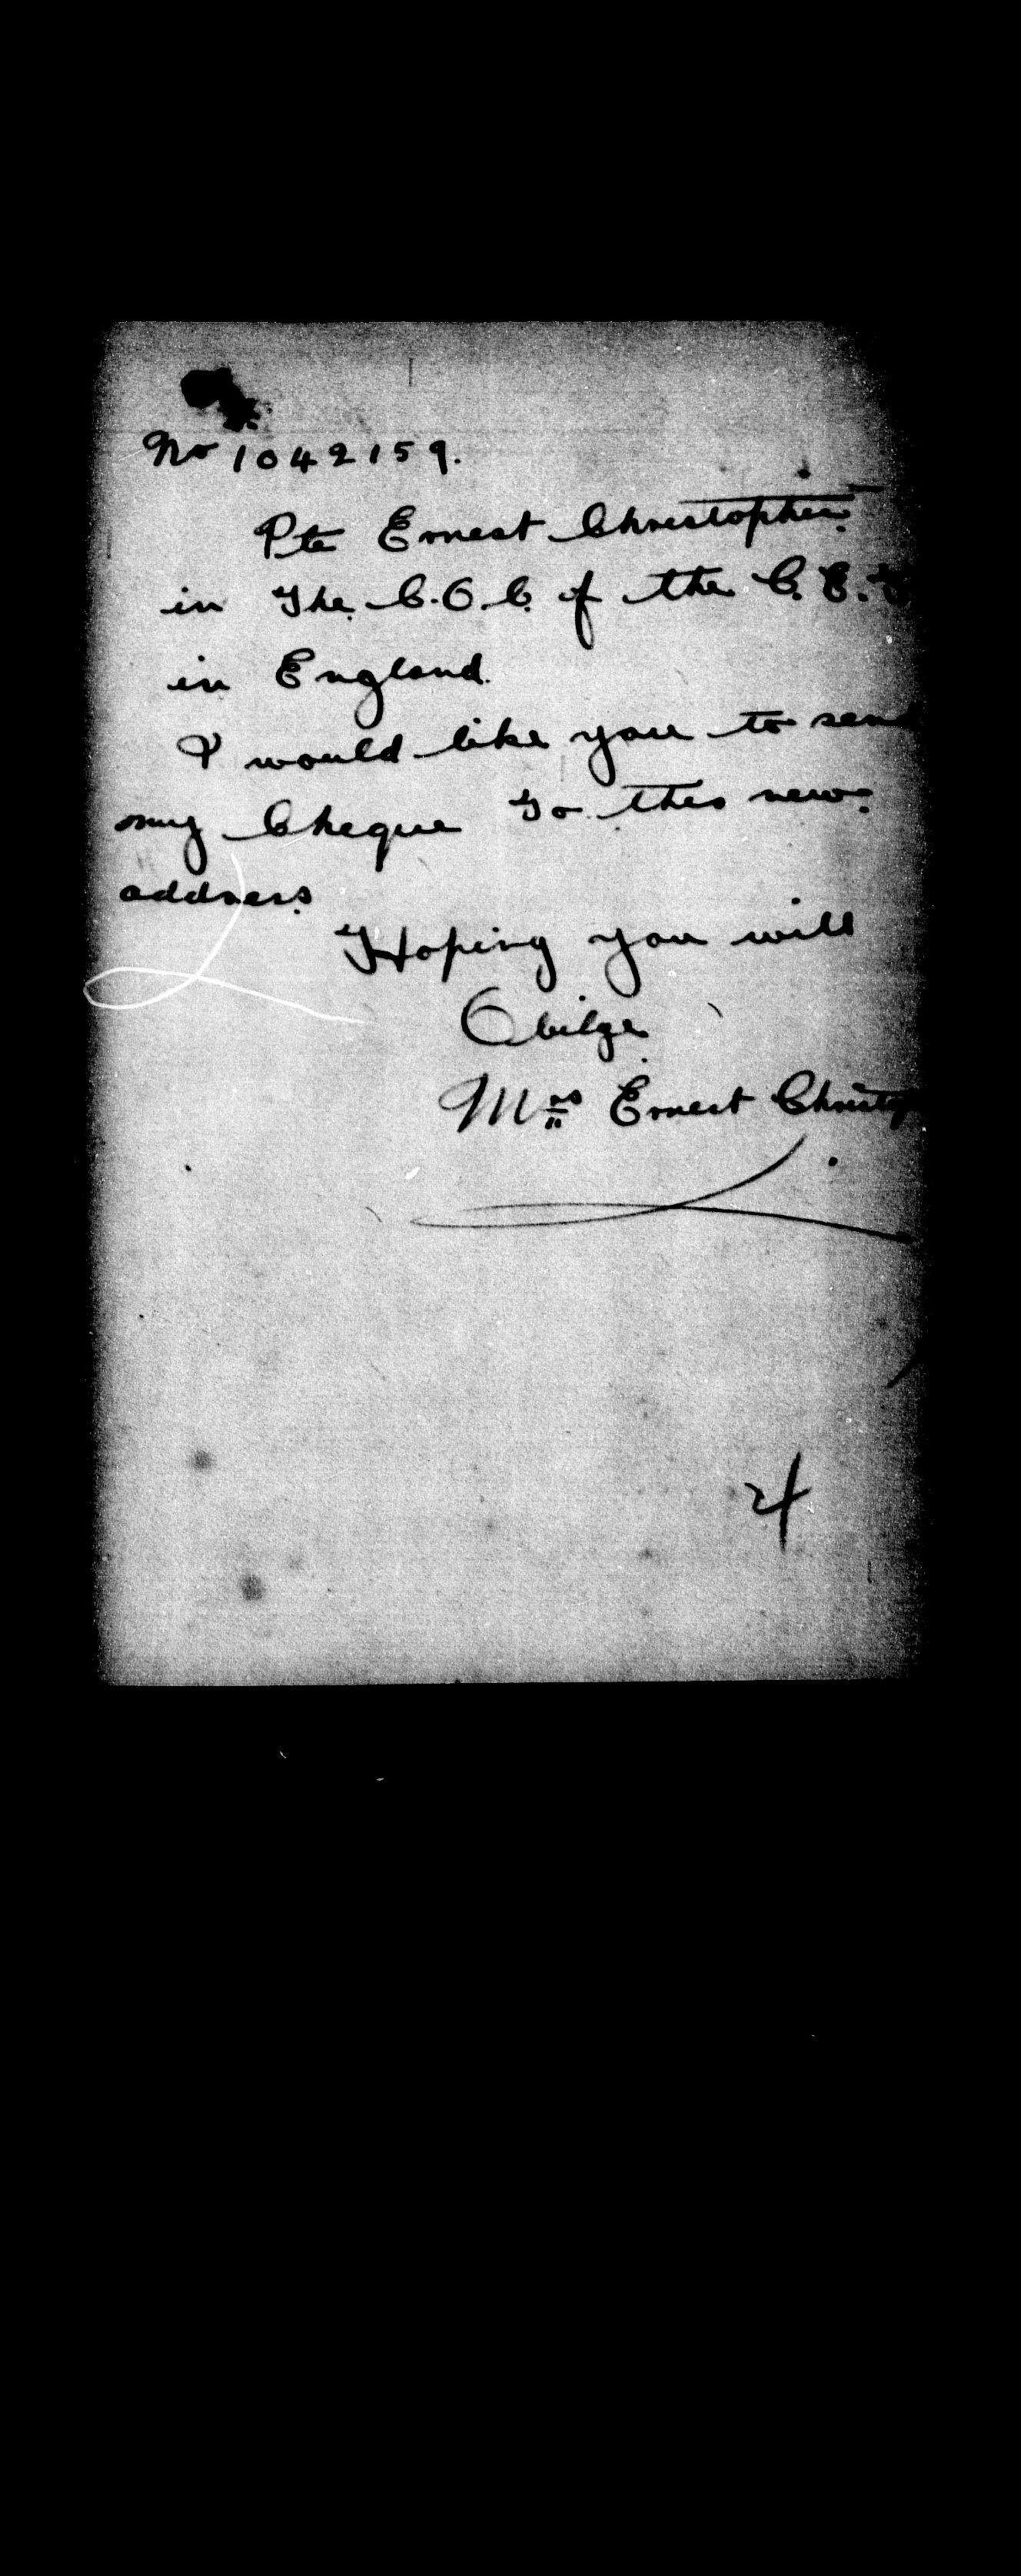 No 1042159.
Pte Ernest Christopher
in The C.O.C. of the C.E.F
in England.
I would like you to send
my Cheque To this new
address
Hoping you will
Obilge
Mrs Ernest Christop
4